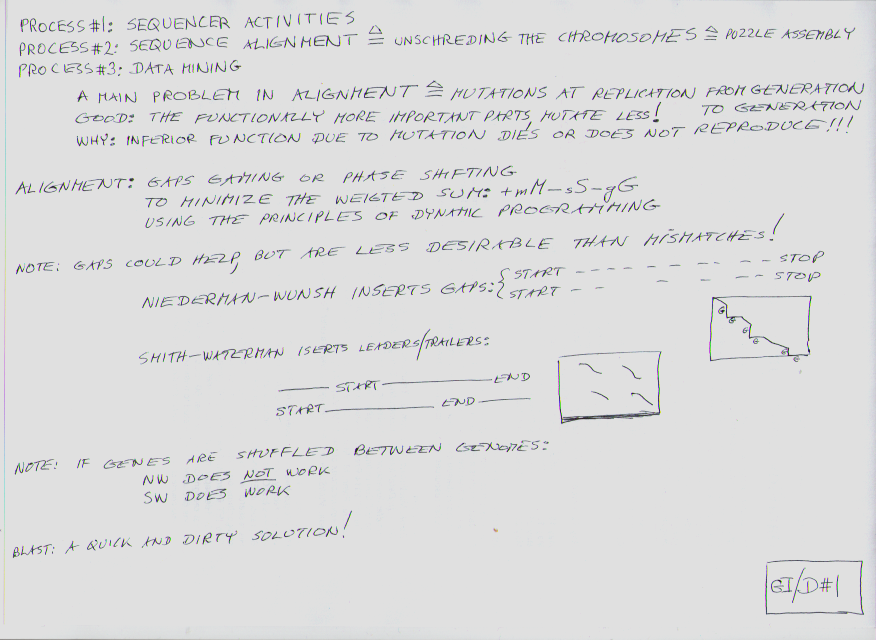 PROCESS#1: SEQUENCER ACTIVITIES
PROCESS#2: SEQUENCE ALIGNMENT ≙ UNSCHREDING THE CHROMOSOMES ≙ PUZZLE ASSEMBLY
PROCESS#3: DATA MINING
A MAIN PROBLEM IN ALIGNMENT ≙ MUTATIONS AT REPLICATION FROM GENERATION
TO GENERATION
GOOD: THE FUNCTIONALLY MORE IMPORTANT PARTS, MUTATE LESS!
WHY: INFERIOR FUNCTION DUE TO MUTATION DIES OR DOES NOT REPRODUCE!!!
ALIGNMENT: GAPS GAMING OR PHASE SHIFTING
TO MINIMIZE THE WEIGTED SUM: +mM-sS-gG
USING THE PRINCIPLES OF DYNAMIC PROGRAMMING
NOTE: GAPS COULD HELP, BUT ARE LESS DESIRABLE THAN MISMATCHES!
NIEDERMAN-WUNSH INSERTS GAPS: { START - - - - - - - - - STOP
START - - - - - - STOP
G G G G G
SMITH-WATERMAN ISERTS LEADERS/TRAILERS:
—— START —————— END
START —————— END ——
NOTE: IF GENES ARE SHUFFLED BETWEEN GENOMES:
NW DOES NOT WORK
SW DOES WORK
BLAST: A QUICK AND DIRTY SOLUTION!
GI/D#1